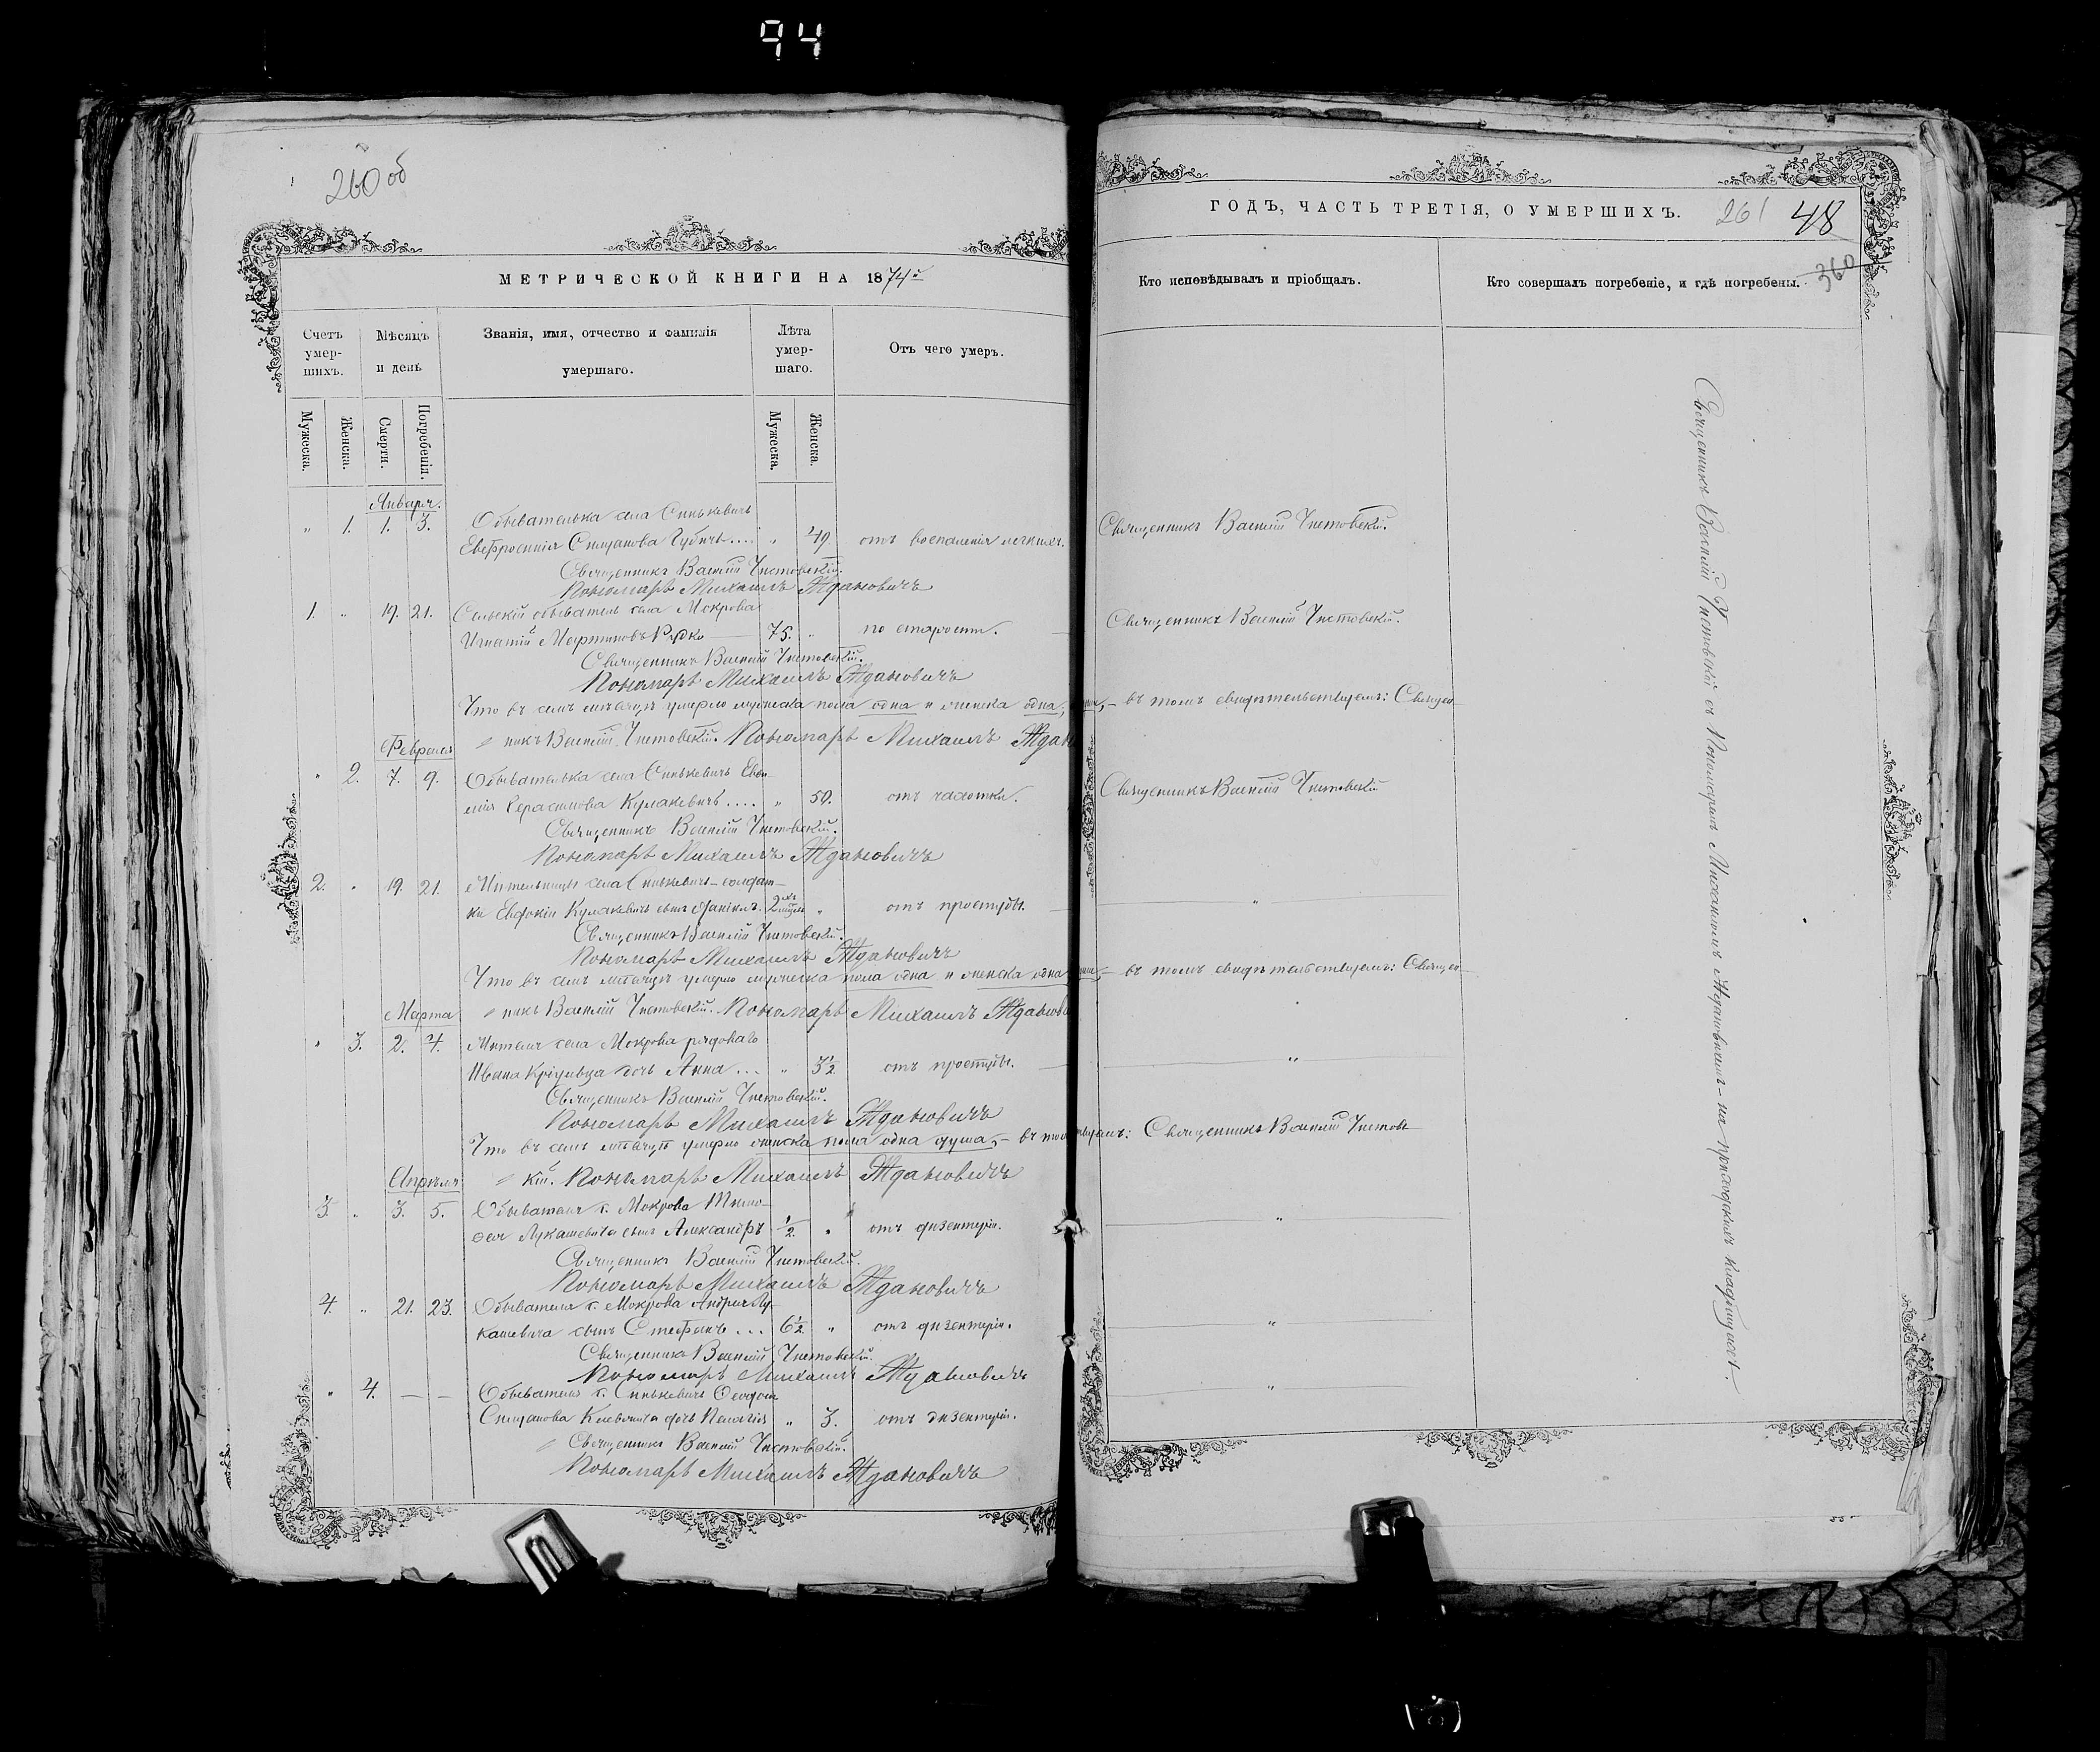 94
260 об
МЕТРИЧЕСКОЙ КНИГИ НА 1874й
Счетъ умер-шихъ.
Мѣсяцъ и день
Званія, имя, отчество и фамилія умершаго.
Лѣта умер-шаго.
Отъ чего умеръ.
Мужеска.
Женска.
Смерти.
Погребенія.
Мужеска.
Женска.
Январь.
" 1. 1. 3. Обывателька села Синькевичъ
Евфросинія Стефанова " 49. отъ воспаленія легкихъ.
Священникъ Василій Чистовскій.
Пономарь Михаилъ Ждановичъ
1. " 19. 21. Сельскій обыватель села Мокрова
Игнатій Мартиновъ Рудко 75. " по старости.
Священникъ Василій Чистовскій.
Пономарь Михаилъ Ждановичъ
Что въ семъ мѣсяцѣ умерло мужска пола одна и женска одна, въ томъ свидѣтельствуемъ: Священ-
никъ Василій Чистовскій. Пономарь Михаилъ Ждан
Февраль
" 2. 7. 9. Обывателька села Синькевичъ Евѳи-
мія Герасимова Кулакевичъ .... " 50. отъ чахотки.
Священникъ Василій Чистовскій.
Пономарь Михаилъ Ждановичъ
2. " 19. 21. Жительницы села Синькевичъ - солдат-
ки Евдокіи Кулакевичъ сынъ Даніилъ. 2хъ "отъ простуды.
Священникъ Василій Чистовскій.
Пономарь Михаилъ Ждановичъ
Что въ семъ мѣсяцѣ умерло мужеска пола одна и женска одна въ томъ свидѣтельствуемъ: Священ-
никъ Василій Чистовскій. Пономарь Михаилъ Жданов
Марта
" 3. 2. 4. Жителя села Мокрова рядоваго
Ивана дочь Анна ... " 3½ отъ простуды.
Священникъ Василій Чистовскій.
Пономарь Михаилъ Ждановичъ
Что въ семъ мѣсяцѣ умерло женска пола одна душа, - въ том Священникъ Василій Чистовс
кій. Пономарь Михаилъ Ждановичъ
Апрѣль
3. " 3. 5. Обывателя с. Мокрова Тимо-
ѳея Лукашевича сынъ Александръ ½ " отъ дизентеріи.
Священникъ Василій Чистовскій.
Пономарь Михаилъ Ждановичъ
4. " 21. 23. Обывателя с. Мокрова Андрея Лу-
кашевича сынъ Стефанъ ... 6½ " отъ дизентеріи.
Священникъ Василій Чистовскій.
Пономарь Михаилъ Ждановичъ
" 4. — — Обывателя с. Синькевичъ
дочь Пелагія " 3. отъ дизентеріи.
Священникъ Василій Чистовскій.
Пономарь Михаилъ Ждановичъ
ГОДЪ, ЧАСТЬ ТРЕТІЯ, О УМЕРШИХЪ.
261
48
360
Кто исповѣдывалъ и пріобщалъ.
Кто совершалъ погребеніе, и гдѣ погребены.
Священникъ Василій Чистовскій.
Священникъ Василій Чистовскій.
Священникъ Василій Чистовскій
Священникъ Василій Чистовскій съ Пономаремъ Михаиломъ Ждановичемъ - на приходскихъ кладбищахъ.